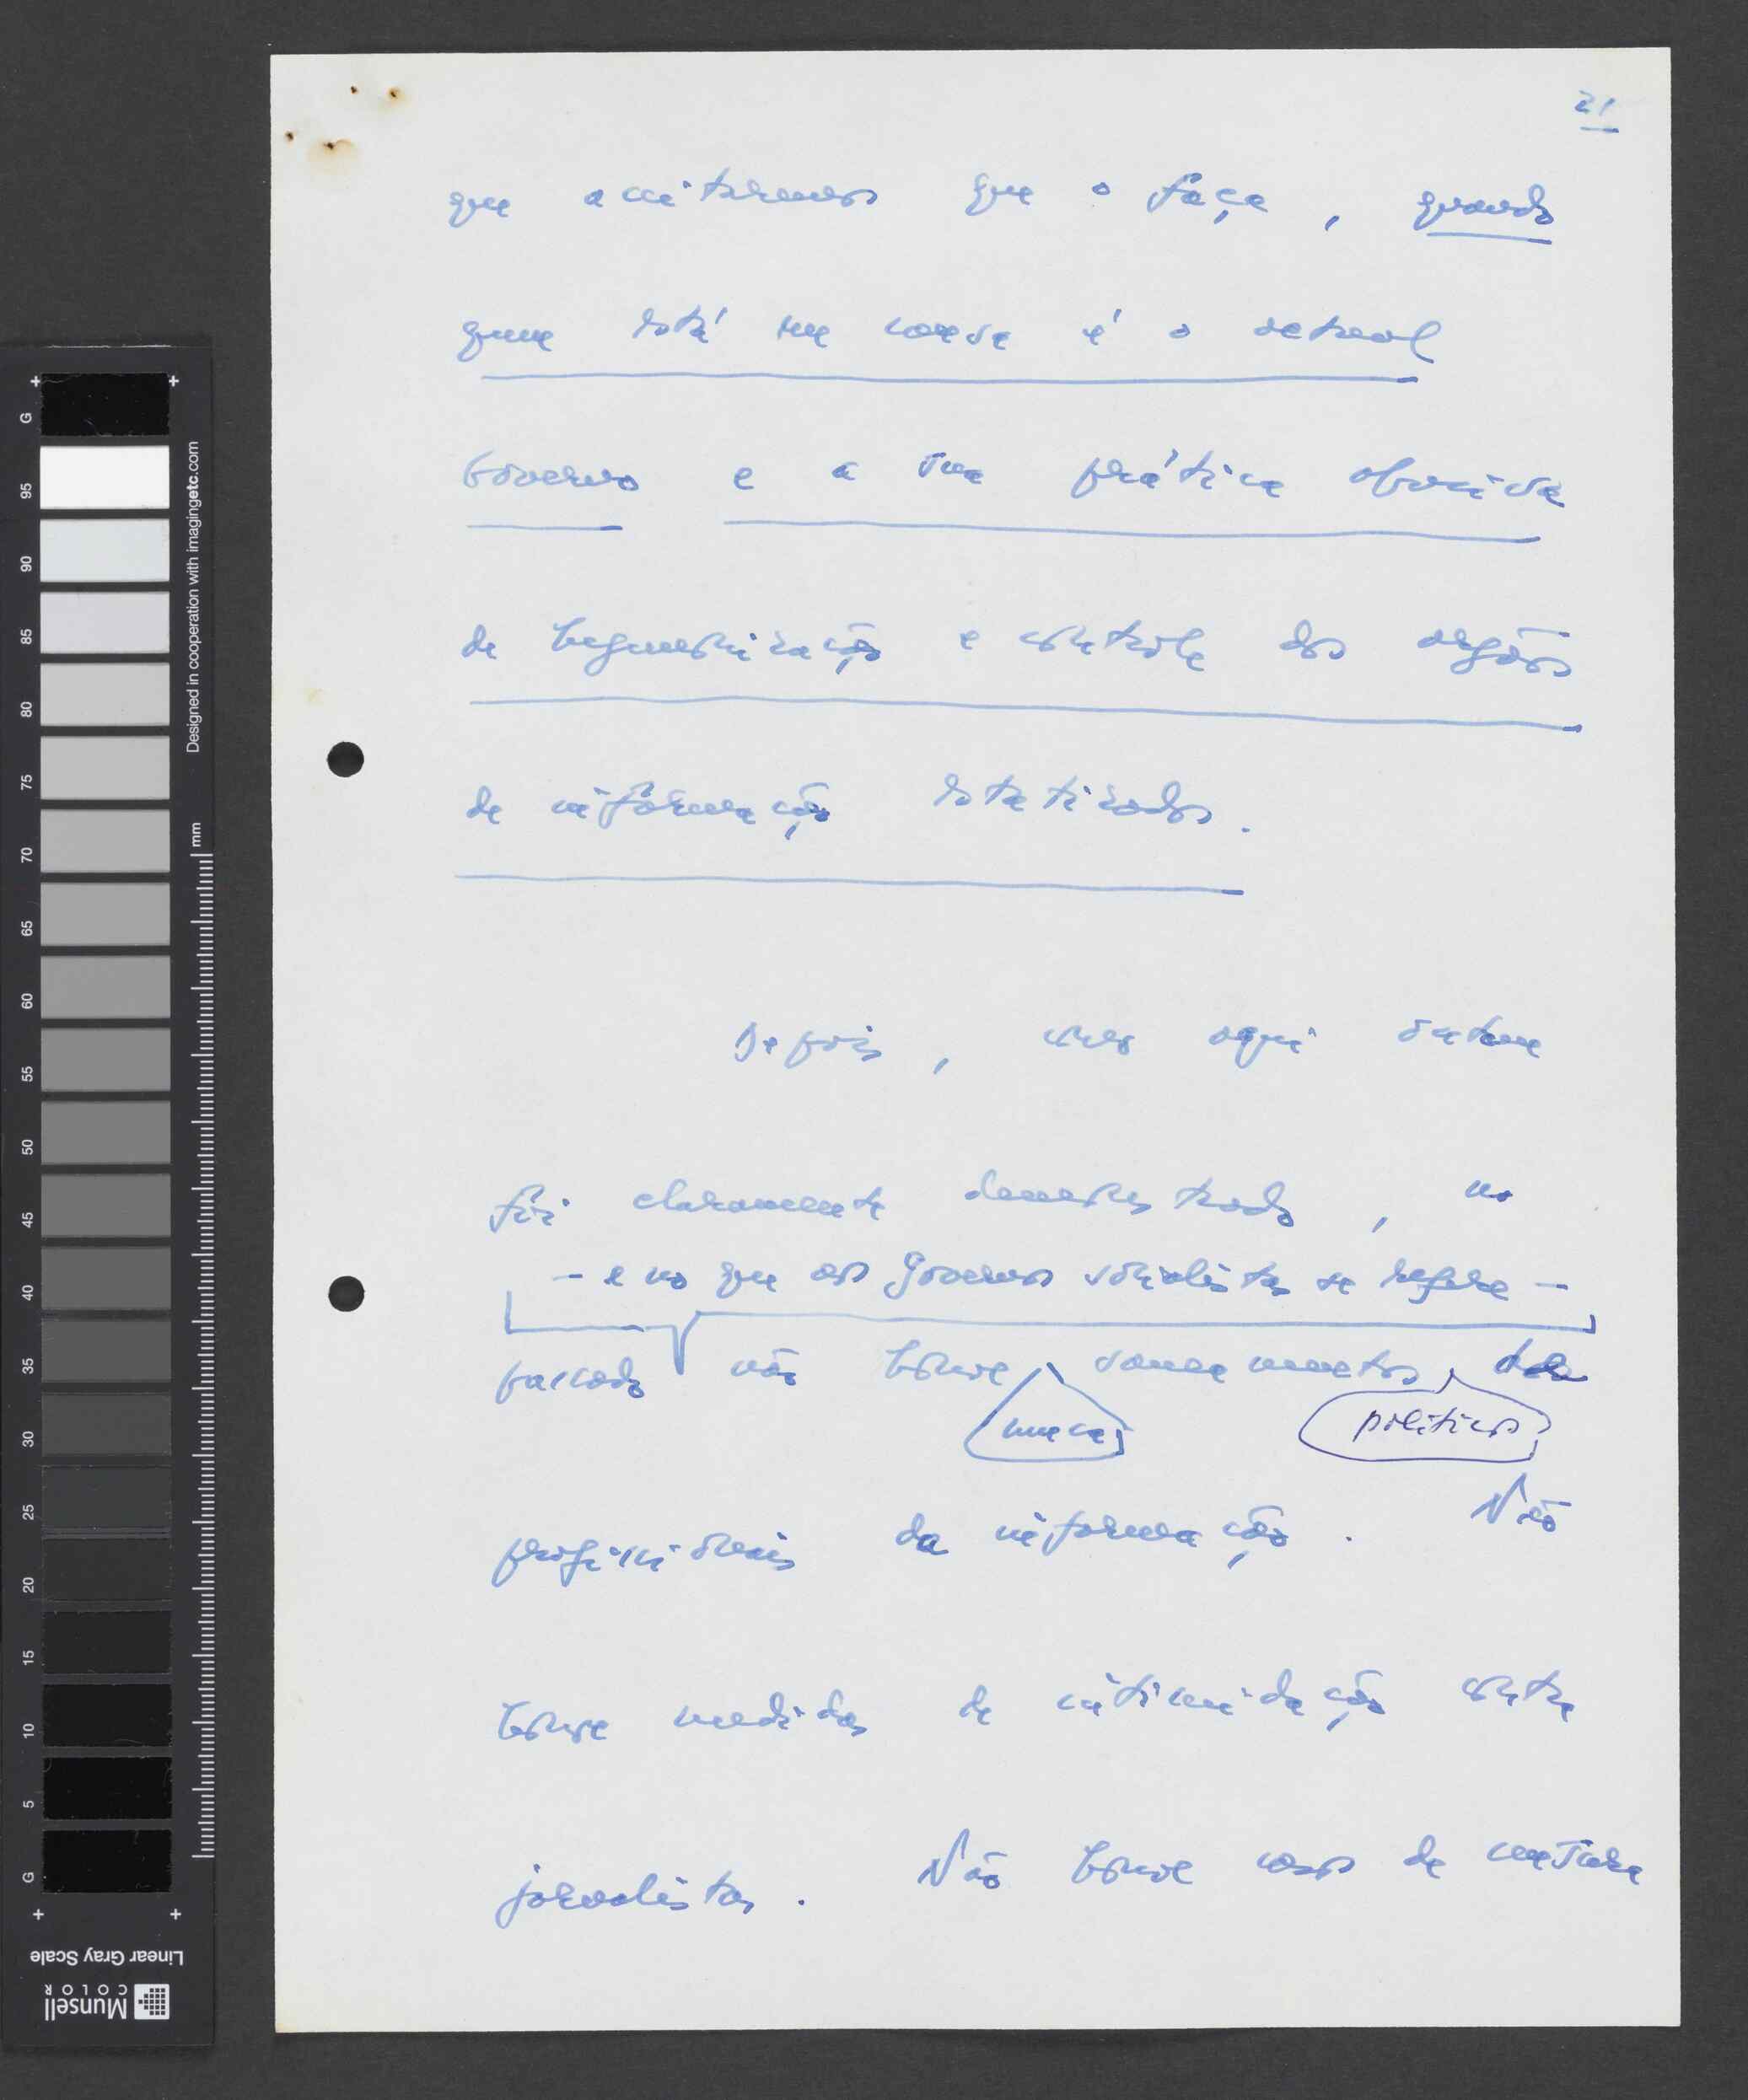 21
que aceitaremos que o faça, quando
quem está em causa é o actual
Governo e a sua prática abusiva
de hegemonização e controle dos orgãos
de informação estatizados.
Depois, como aqui ontem
foi claramente demonstrado, no
- e no que aos Governos socialistas se refere -
passado não houve saneamentos
nunca
políticos
profissionais da informação. Não
houve medidas de intimidação contra
jornalistas. Não houve casos de censura
G
95
90
85
80
75
70
65
60
55
50
45
40
35
30
25
20
15
10
5
G
mm
Designed in cooperation with imagingetc.com
Linear Gray Scale
Munsell
COLOR